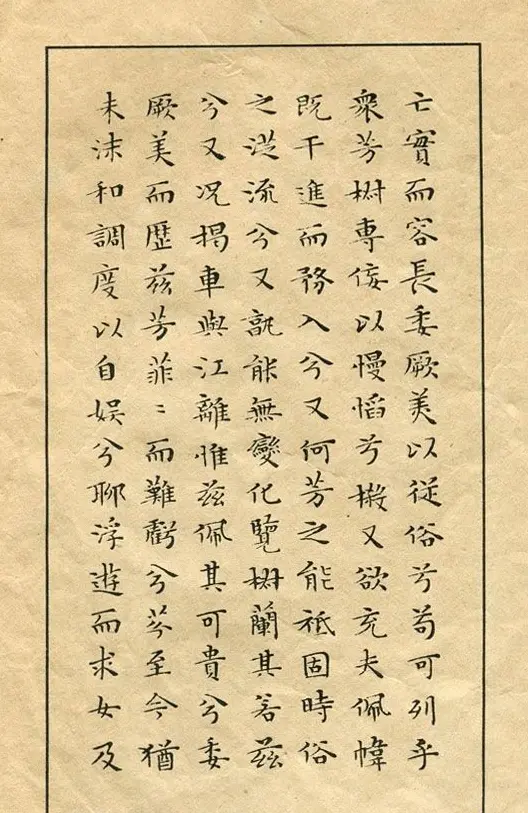 亡實而容長委厥美以從俗兮苟可列乎
衆芳椒專佞以慢慆兮樧又欲充夫佩幃
既干進而務入兮又何芳之能祗固時俗
之從流兮又孰能無變化覽椒蘭其若茲
兮又況揭車與江離惟茲佩其可貴兮委
厥美而歷茲芳菲〻而難虧兮芬至今猶
未沬和調度以自娛兮聊浮遊而求女及